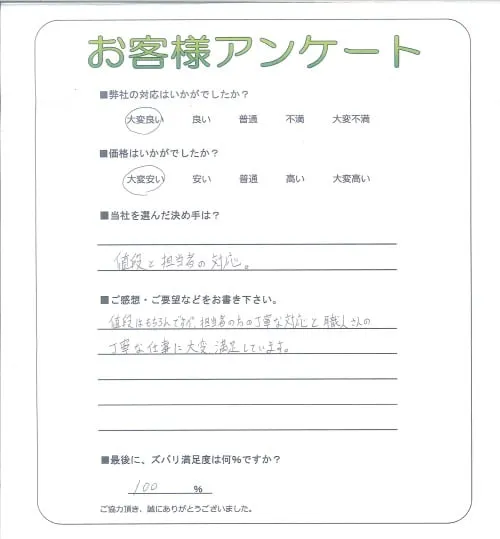 お客様アンケート
■弊社の対応はいかがでしたか？
大変良い 良い 普通 不満 大変不満
■価格はいかがでしたか？
大変安い 安い 普通 高い 大変高い
■当社を選んだ決め手は？
値段と担当者の対応。
■ご感想・ご要望などをお書き下さい。
値段はもちろんですが、担当者の方の丁寧な対応と職人さんの
丁寧な仕事に大変満足しています。
■最後に、ズバリ満足度は何％ですか？
100 ％
ご協力頂き、誠にありがとうございました。